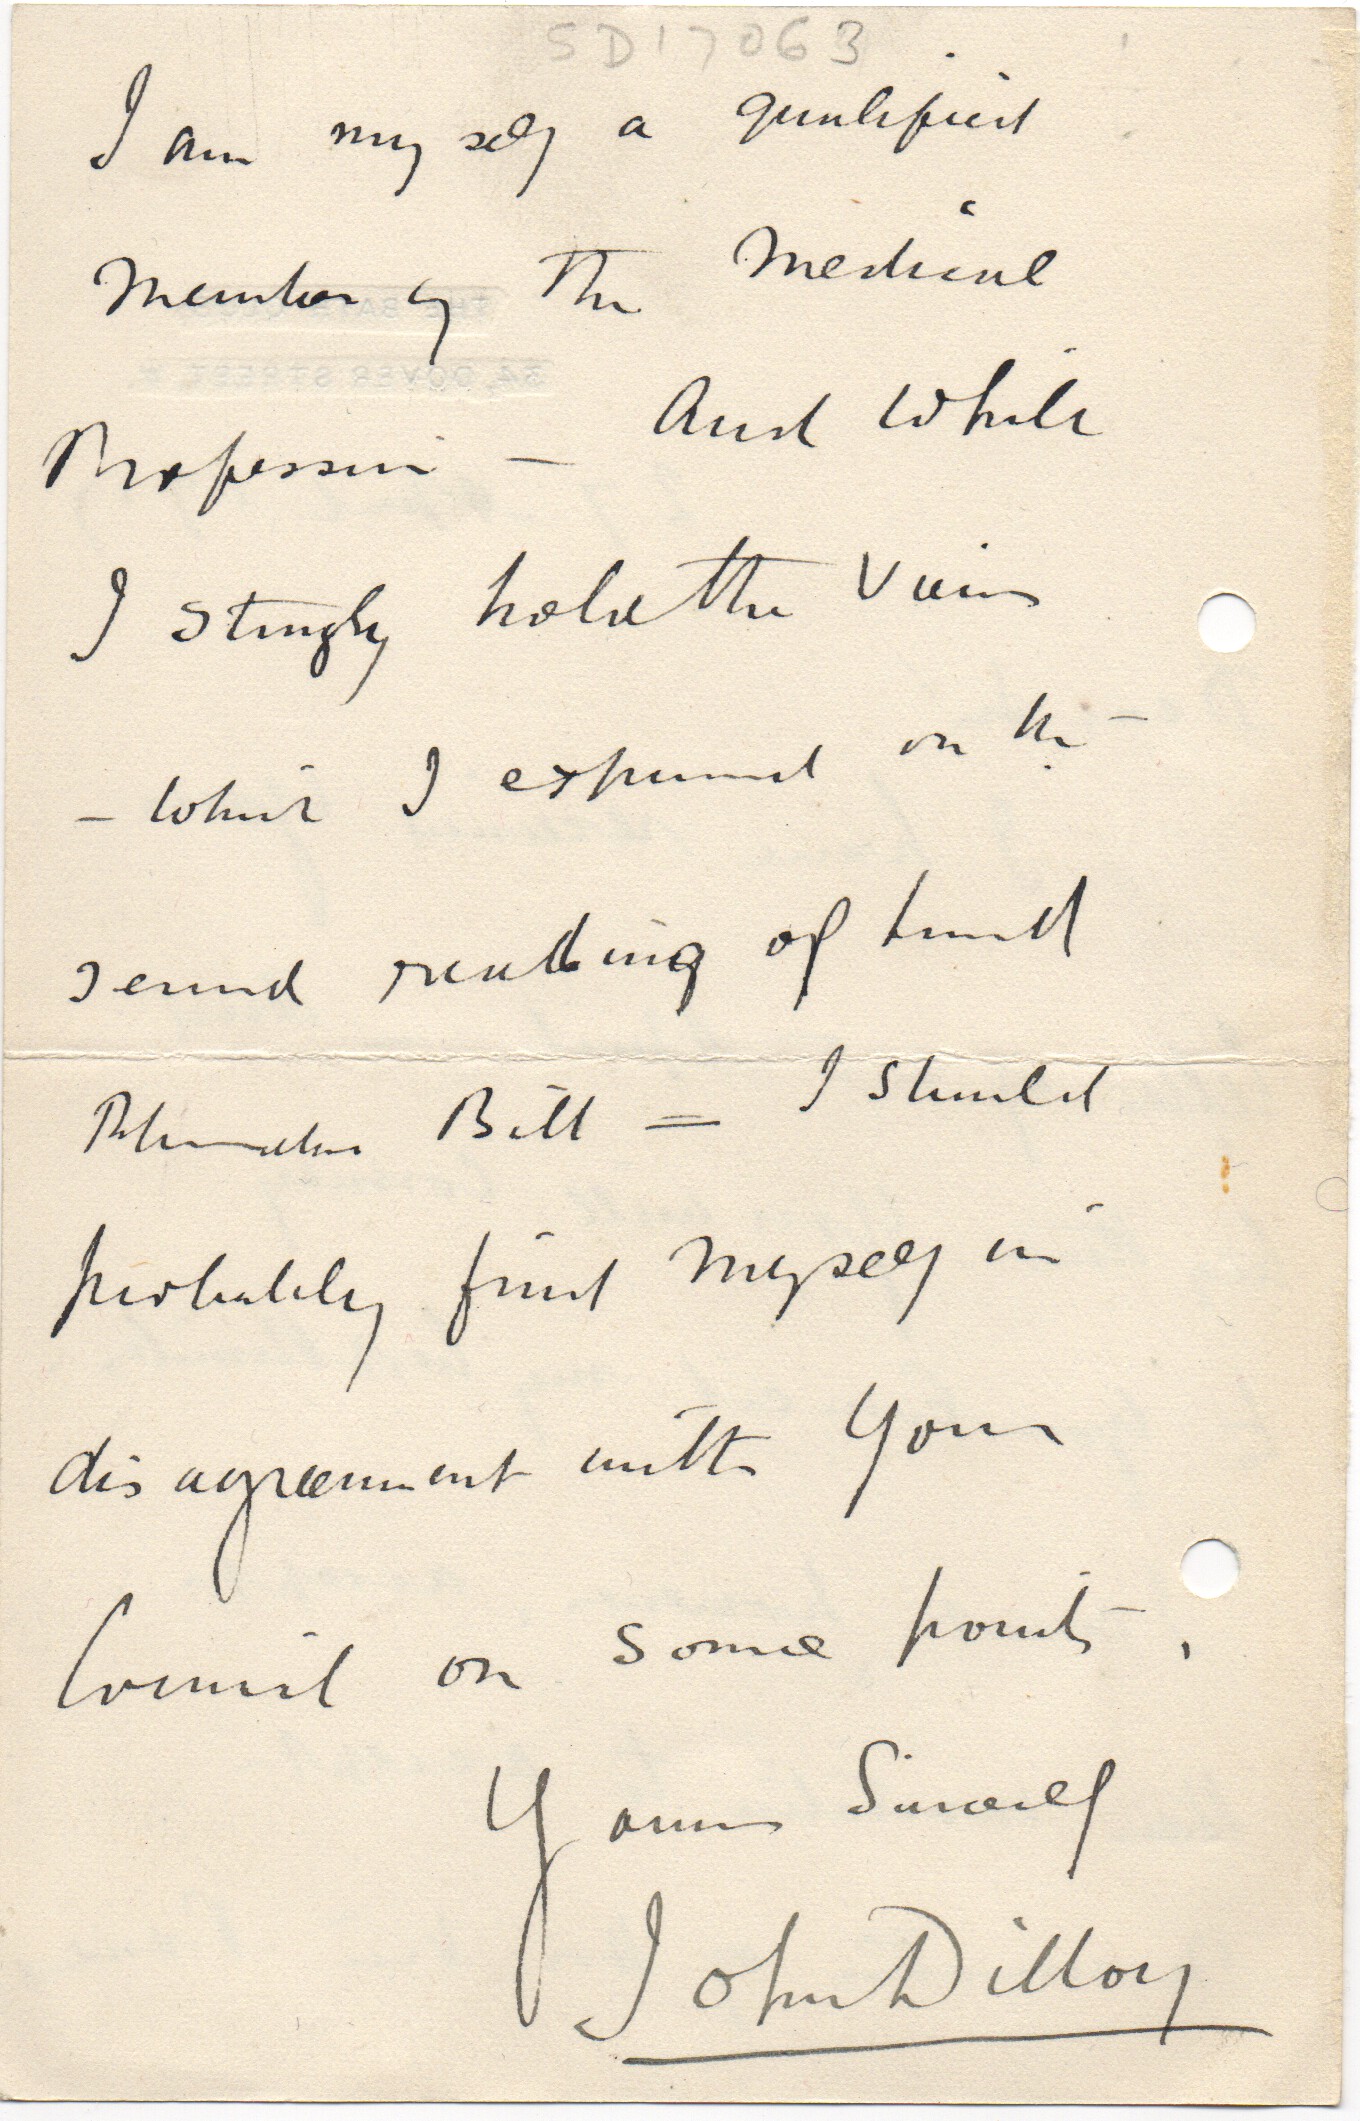 SD17063
I am myself a qualified
Member of the Medical
Profession — And while
I strongly hold the views
– which I expressed on the –
second reading of
Bill = I should
probably find myself in
disagreement with your
Council on some points.
Yours Sincerely
John Dillon